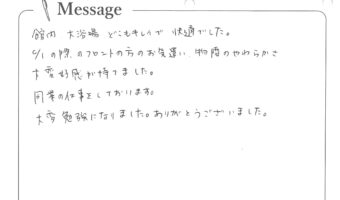 Message
館内 大浴場 どこもキレイで 快適でした。
C/Iの際のフロントの方のお気遣い、物腰のやわらかさ
大変好感が持てました。
同業の仕事をしております。
大変勉強になりました。ありがとうございました。